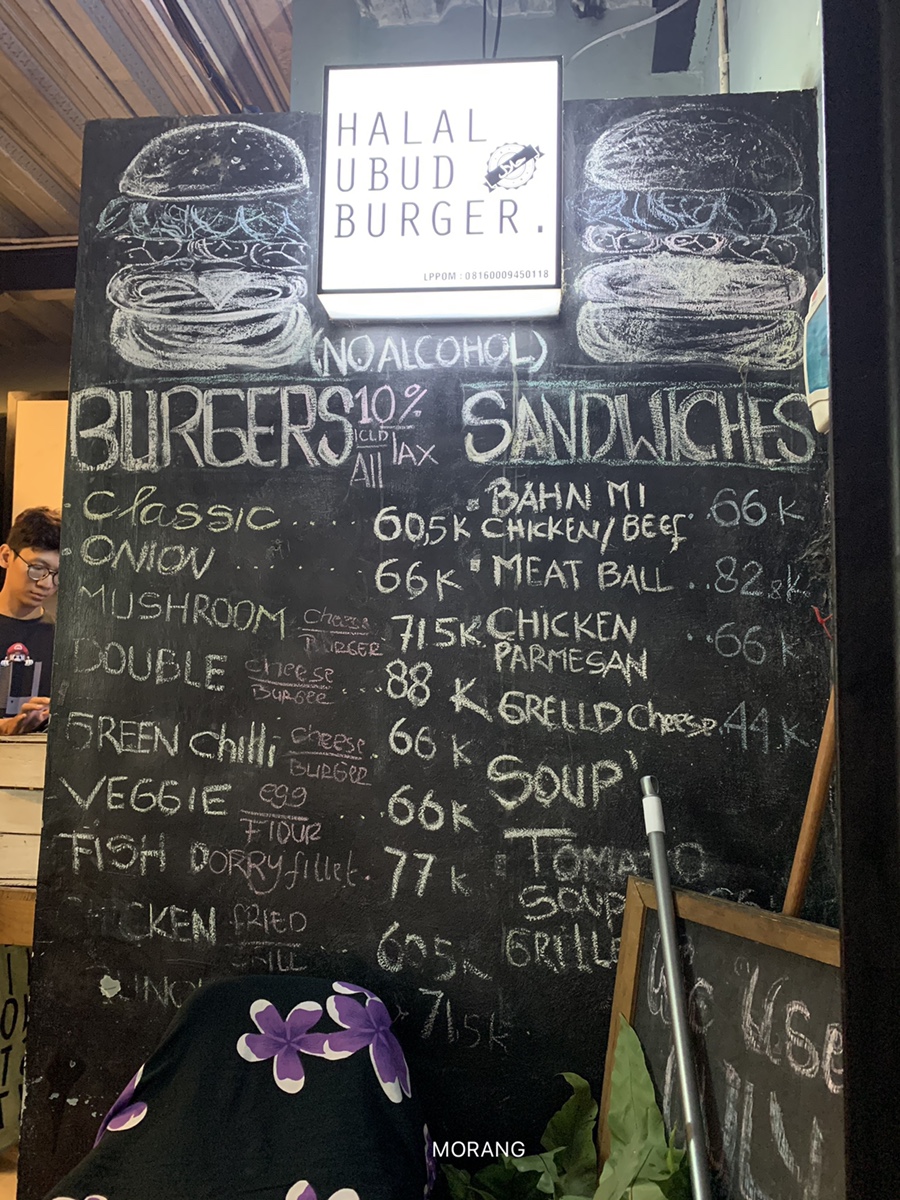 HALAL
UBUD
BURGER.
LPPOM : 08160009450118
(NO ALCOHOL)
BURGERS 10% ICLD TAX All
Classic .... 60,5K
ONION ...... 66K
MUSHROOM cheese BURGER 71.5K
DOUBLE cheese BURGER ... 88 K
GREEN chilli cheese BURGER . 66 K
VEGGIE egg FlOUR ... 66K
FISH DORRY fillet. 77 K
CHICKEN FRIED 605K
71.5K
SANDWICHES
BAHN MI
CHICKEN/BEEF . 66 K
MEAT BALL .. 82.8K
CHICKEN
PARMESAN .. 66K
GRELLD cheese . 44K
SOUP'
TOMATO
SOUP
GRILLE
We Use
MORANG